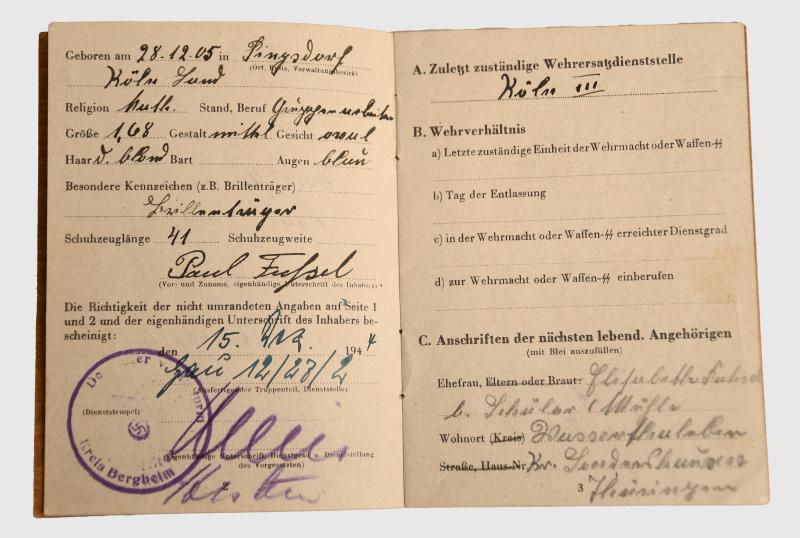 Geboren am 28.12.05 in Pingsdorf
(Ort, Kreis, Verwaltungsbezirk)
Köln Land
Religion Kath. Stand, Beruf
Größe 1,68 Gestalt mittl Gesicht oval
Haar d. blond Bart Augen blau
Besondere Kennzeichen (z.B. Brillenträger)
Brillenträger
Schuhzeuglänge 41 Schuhzeugweite
Paul Fussel
(Vor- und Zuname, eigenhändige Unterschrift des Inhabers)
Die Richtigkeit der nicht umrandeten Angaben auf Seite 1
und 2 und der eigenhändigen Unterschrift des Inhabers be-
scheinigt:
den 15. Dez. 1944
Gau 12/23/2
(Ausfertigender Truppenteil, Dienststelle)
(Dienststempel)
Kreis Bergheim
(Eigenhändige Unterschrift, Dienstgrad u. Dienststellung
des Vorgesetzten)
2
A. Zuletzt zuständige Wehrersatzdienststelle
Köln III
B. Wehrverhältnis
a) Letzte zuständige Einheit der Wehrmacht oder Waffen-SS
b) Tag der Entlassung
c) in der Wehrmacht oder Waffen-SS erreichter Dienstgrad
d) zur Wehrmacht oder Waffen-SS einberufen
C. Anschriften der nächsten lebend. Angehörigen
(mit Blei auszufüllen)
Ehefrau, Eltern oder Braut: Elisabeth Fussel
b. Schüler Mühle
Wohnort (Kreis) Wasserthaleben
Straße, Haus-Nr. Kr. Sondershausen
3 Thüringen